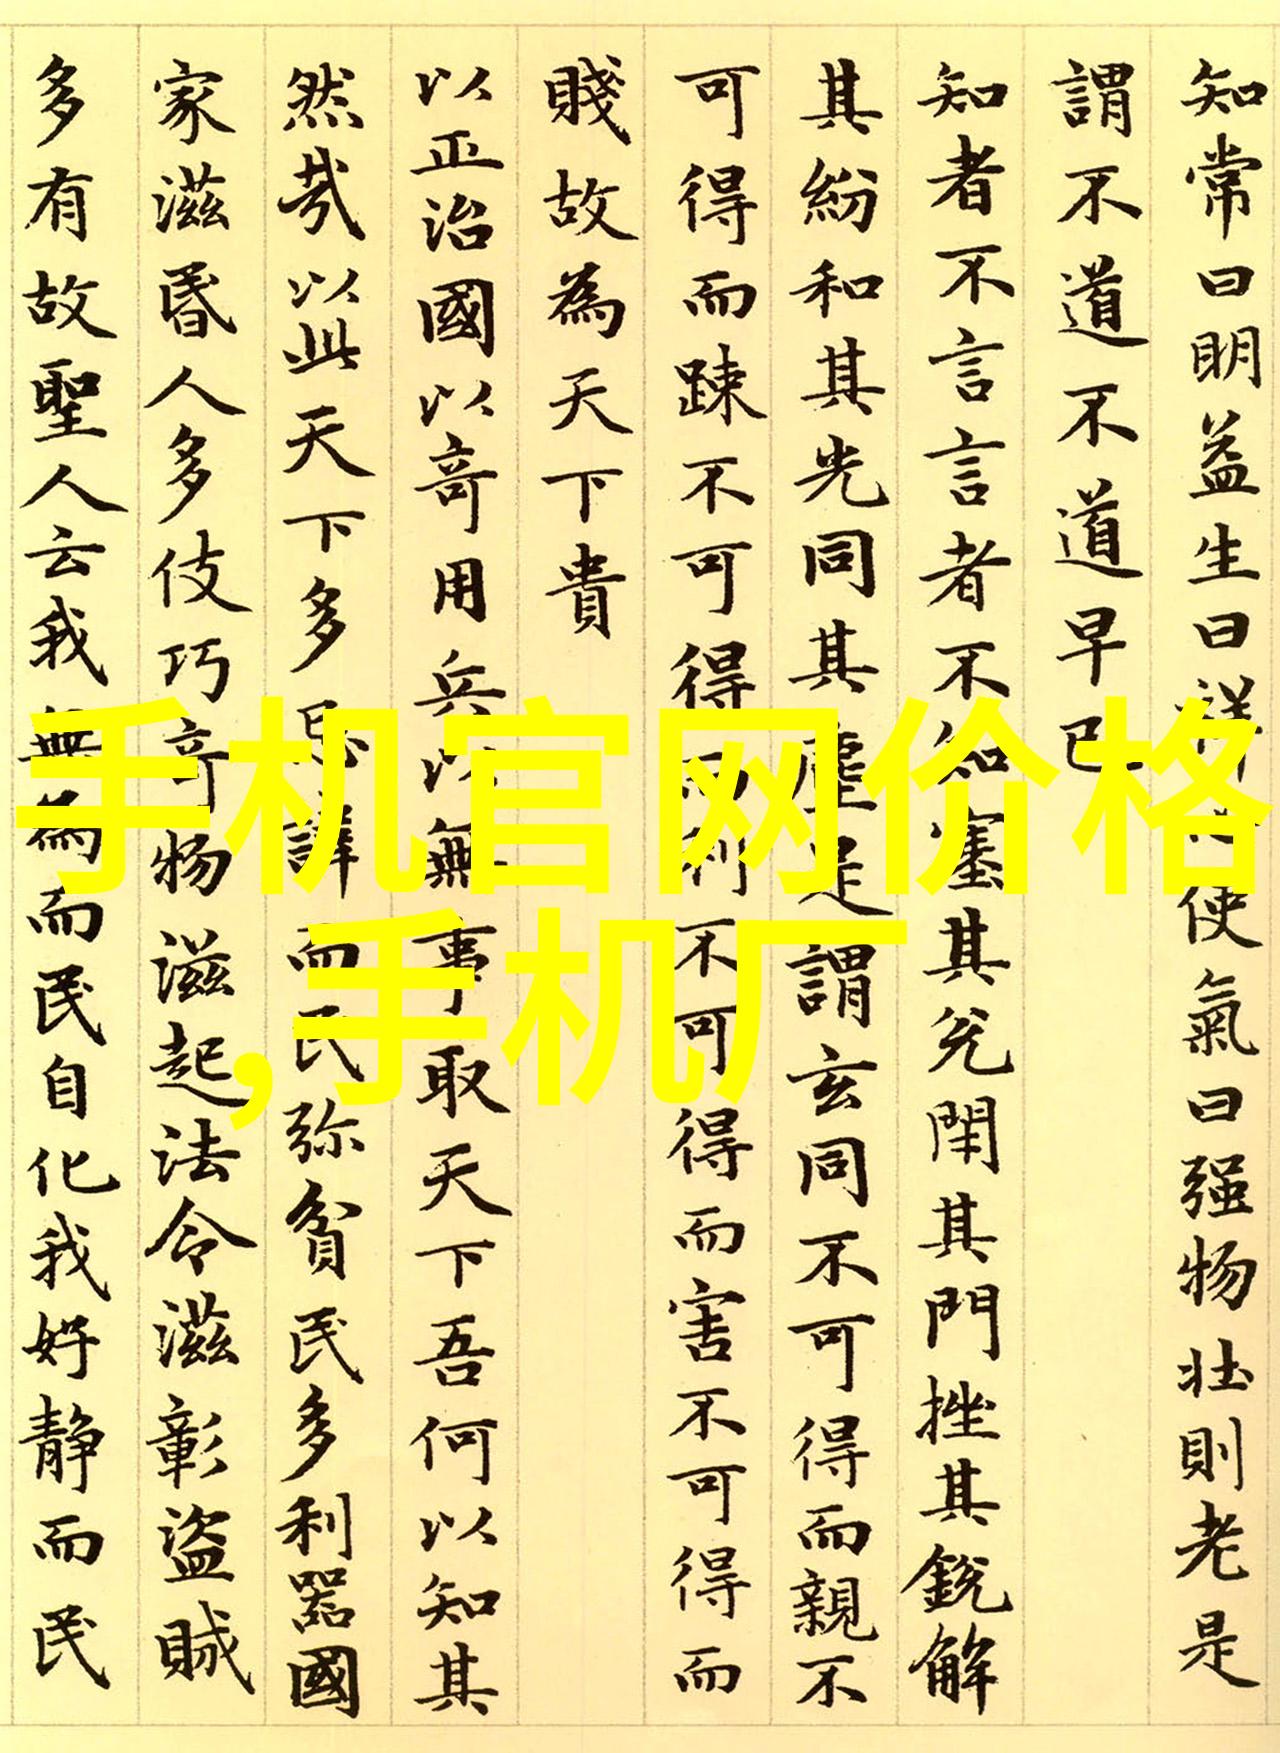 知常曰明益生曰祥心使氣曰强物壯則老是
謂不道不道早已
知者不言言者不知塞其兊閇其門挫其銳解
其紛和其光同其塵是謂玄同不可得而親不
可得而踈不可得而利不可得而害不可得而
賤故為天下貴
以正治國以竒用兵以無事取天下吾何以知其
然㢤以此天下多忌諱而民弥貧民多利器國
家滋昬人多伎巧竒物滋起法令滋彰盜賊
多有故聖人云我無為而民自化我好靜而民
手机官网价格
,手机厂